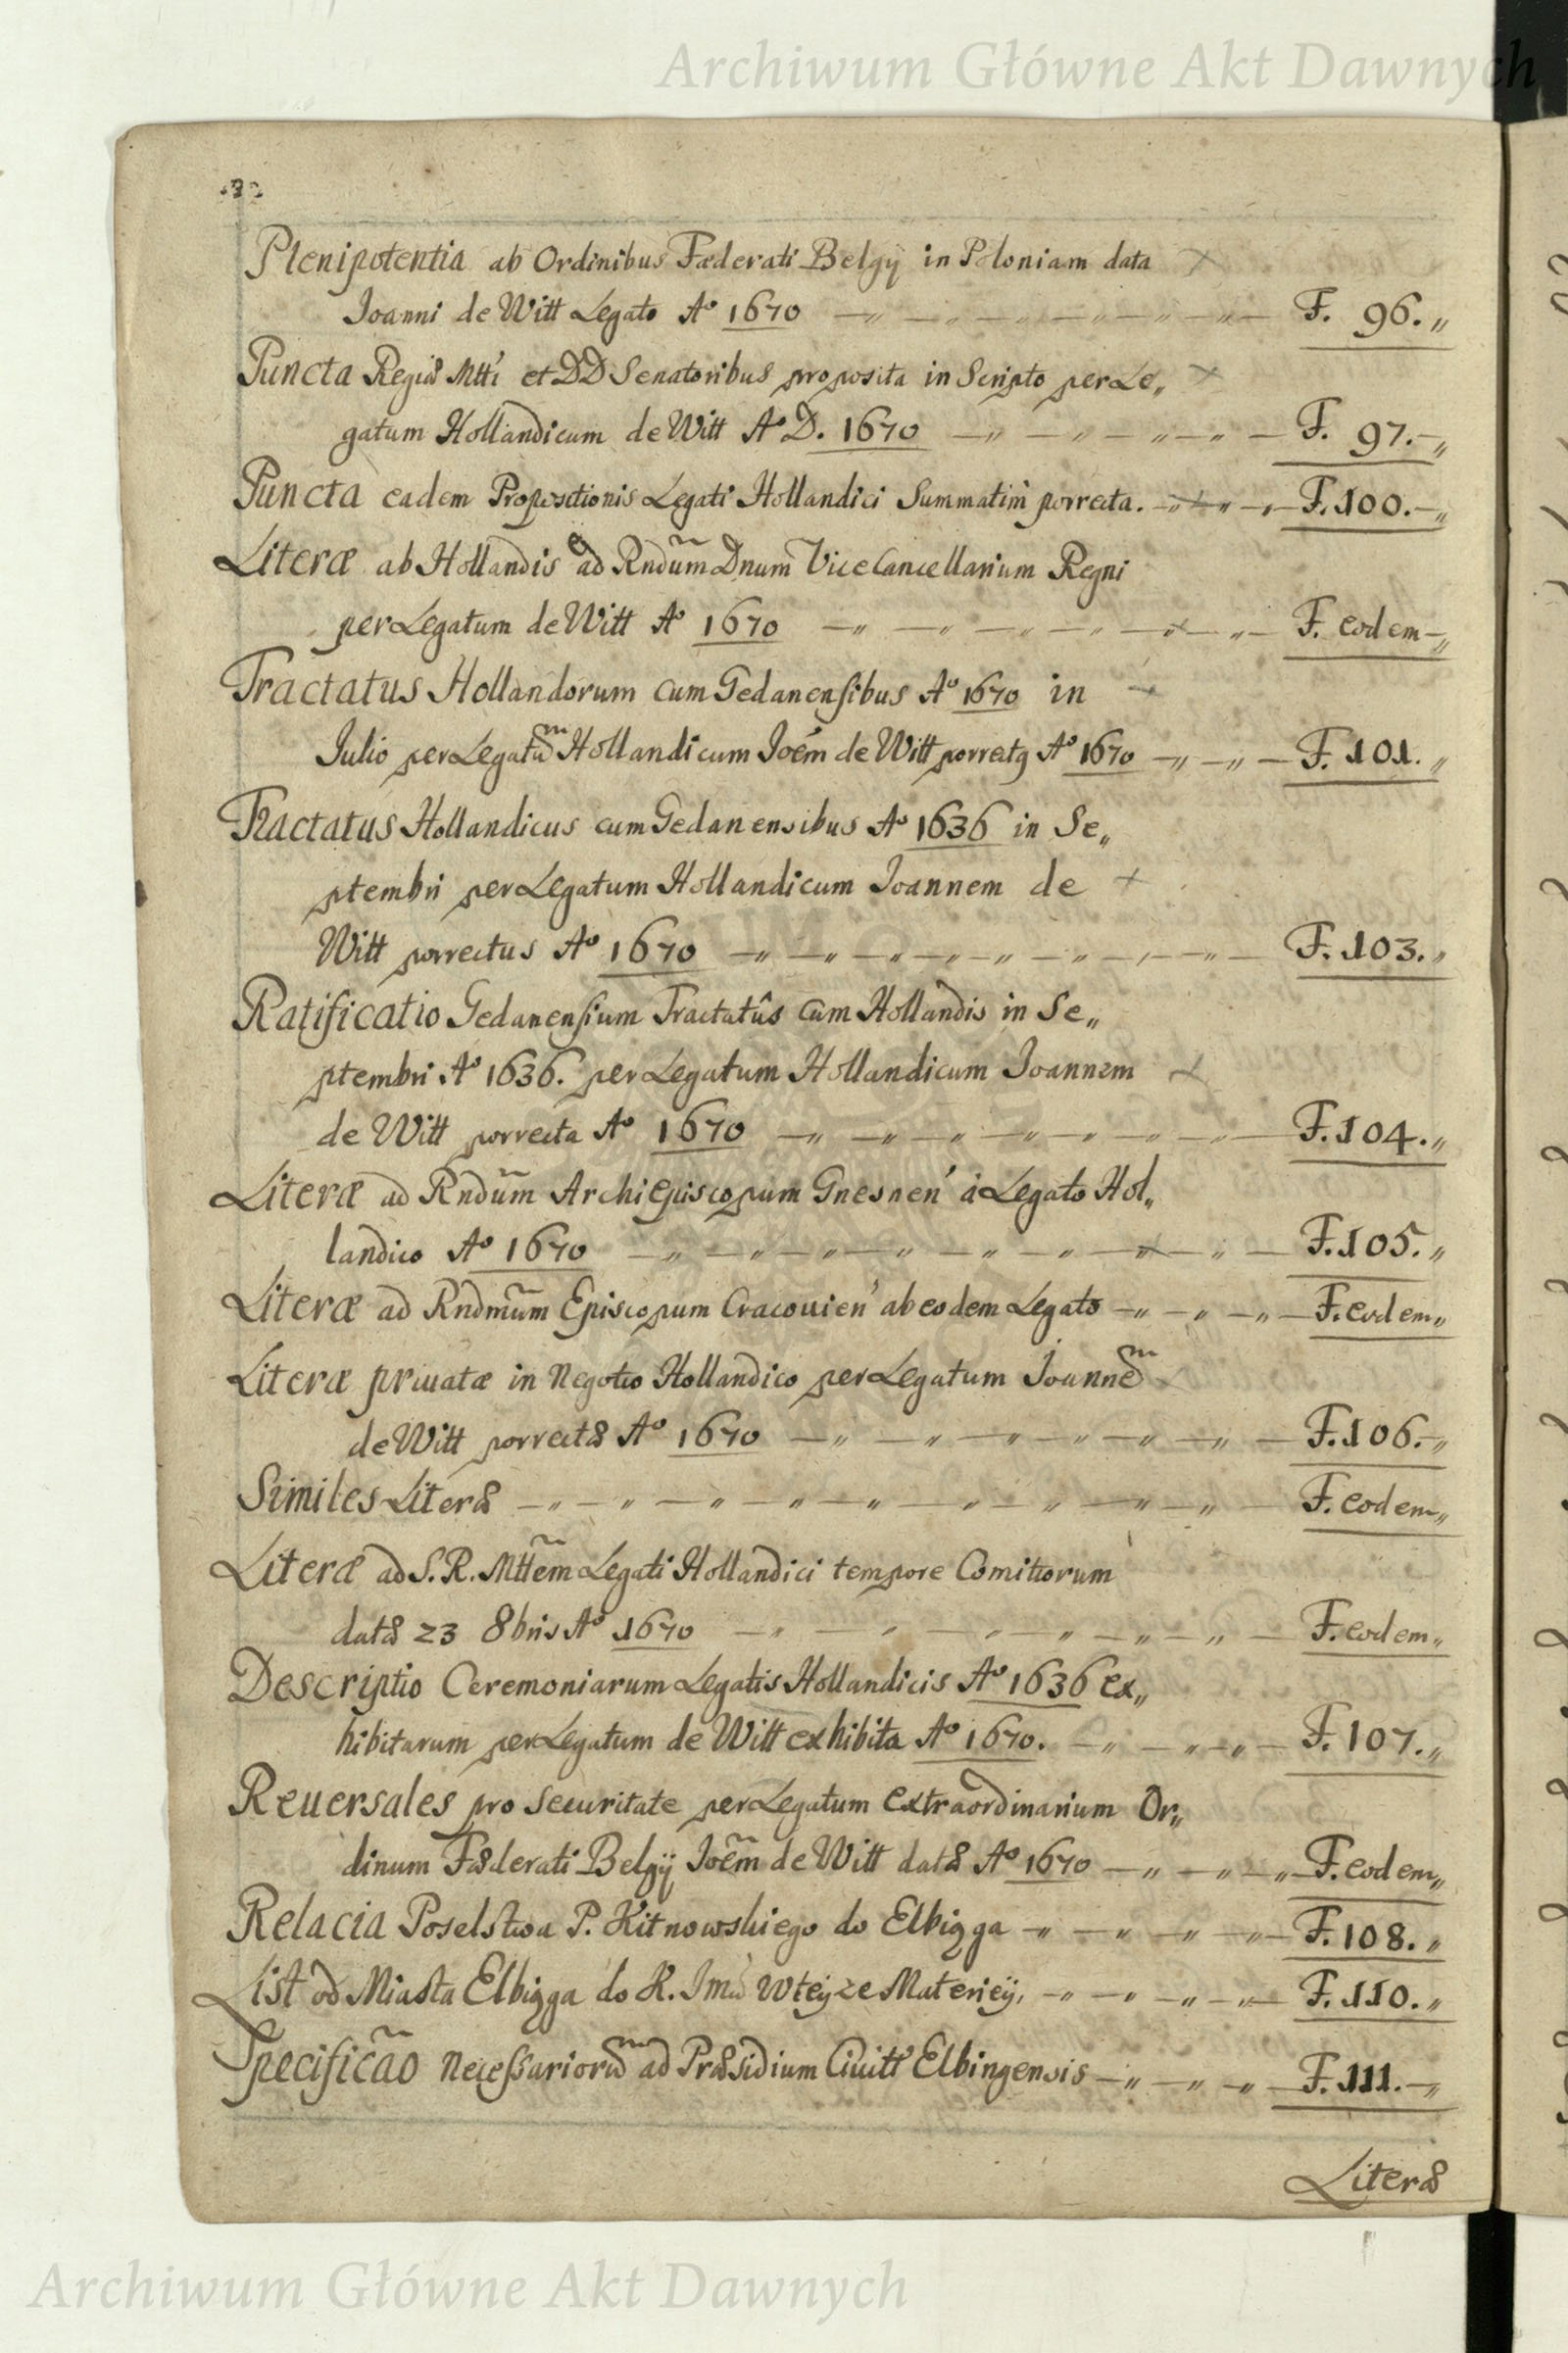 Archiwum Główne Akt Dawnych
Plenipotentia ab Ordinibus Fæderati Belgÿ in Poloniam data
Joanni de Witt Legato Aº 1670 F. 96.
Puncta Regiæ Mtti et DD Senatoribus proposita in Scripto per Le,,
gatum Hollandicum de Witt Aº D. 1670 F. 97.
Puncta eadem Propositionis Legati Hollandici Summatim porrecta. F. 100.
Literæ ab Hollandis ad Rndum Dnum Vice Cancellarium Regni
per Legatum de Witt Aº 1670 F. eodem
Tractatus Hollandorum cum Gedanensibus Aº 1670 in
Julio per Legatum̃ Hollandicum Joem de Witt porrectq Aº 1670 F. 101.
Tractatus Hollandicus cum Gedanensibus Aº 1636 in Se,,
ptembri per Legatum Hollandicum Joannem de
Witt porrectus Aº 1670 F. 103.
Ratificatio Gedanensium Tractatûs cum Hollandis in Se,,
ptembri Aº 1636. per Legatum Hollandicum Joannem
de Witt porrecta Aº 1670 F. 104.
Literæ ad Rndum̃ Archiepiscopum Gnesnen' à Legato Hol,,
landico Aº 1670 F. 105.
Literæ ad Rndmum̃ Episcopum Cracouien' ab eodem Legato F. eodem
Literæ priuatæ in Negotio Hollandico per Legatum Joannem̃
de Witt porrectæ Aº 1670 F. 106.
Similes Literæ F. eodem
Literæ ad S. R. Mttem̃ Legati Hollandici tempore Comitiorum
datæ 23 8bris Aº 1670 F. eodem
Descriptio Ceremoniarum Legatis Hollandicis Aº 1636 ex,,
hibitarum per Legatum de Witt exhibita Aº 1670. F. 107.
Reuersales pro Securitate per Legatum Extraordinarium Or,,
dinum Fæderati Belgÿ Joem̃ de Witt datæ Aº 1670 F. eodem
Relacia Poselstwa P. Kitnowskiego do Elbiąga F. 108.
List od Miasta Elbiąga do K. Jmci w teyze Materiey, F. 110.
Specificão Necessarioru᷈ ad Præsidium Ciuitt' Elbingensis F. 111.
Literæ
Archiwum Główne Akt Dawnych